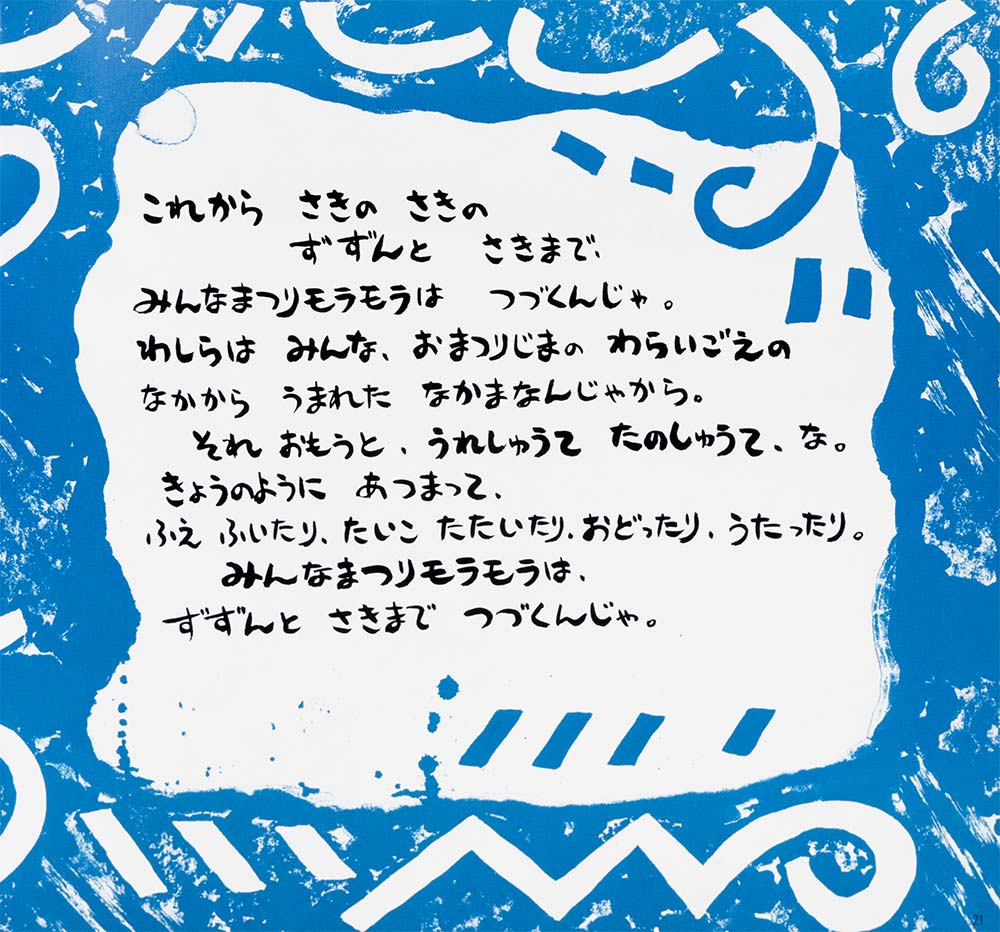 これから　さきの　さきの
ずずんと　さきまで、
みんなまつりモラモラは　つづくんじゃ。
わしらは　みんな、おまつりじまの　わらいごえの
なかから　うまれた　なかまなんじゃから。
それ　おもうと、うれしゅうて　たのしゅうて、な。
きょうのように　あつまって、
ふえ　ふいたり、たいこ　たたいたり、おどったり、うたったり。
みんなまつりモラモラは、
ずずんと　さきまで　つづくんじゃ。
21